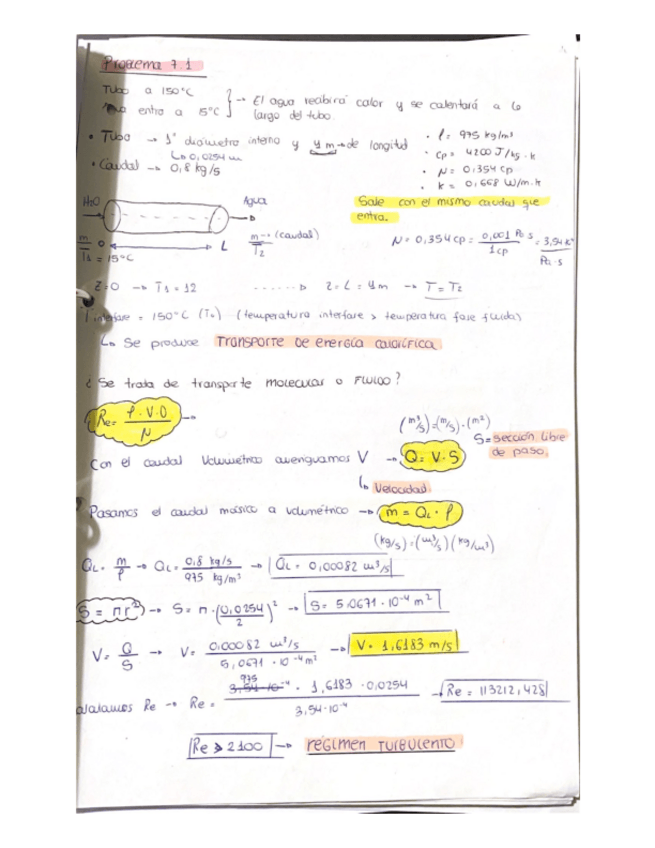 Problema 7.1
Tubo a 150°C
Agua entra a 15°C } → El agua recibirá calor y se calentará a lo
largo del tubo.
• Tubo → 1" diámetro interno y 4 m → de longitud
↳ 0,0254 m
• Caudal → 0,8 kg/s
• ρ = 975 kg/m³
• Cp = 4200 J/kg·k
• μ = 0,354 cp
• k = 0,668 W/m·k
H2O
Agua
Sale con el mismo caudal que
entra.
m
T1 = 15°C
0
L
m → (caudal)
T2
μ = 0,354 cp = 0,001 Pa·s / 1cp = 3,54·10
Pa·s
z=0 → T1 = 12 ······▷ z = L = 4m → T = T2
T interfase = 150°C (T0) (temperatura interfase > temperatura fase fluida)
↳ Se produce TRANSPORTE DE ENERGÍA CALORÍFICA.
¿Se trata de transporte molecular o FLUIDO?
Re = ρ·V·D / μ →
(m³/s) = (m/s)·(m²)
S = sección libre
de paso.
Con el caudal volumétrico averiguamos V → Q = V·S
↳ Velocidad.
Pasamos el caudal másico a volumétrico → m = QL·ρ
(kg/s) = (m³/s)(kg/m³)
QL = m/ρ → QL = 0,8 kg/s / 975 kg/m³ → QL = 0,00082 m³/s
S = πr² → S = π·(0,0254/2)² → S = 5.0671·10⁻⁴ m²
V = Q/S → V = 0,00082 m³/s / 5,0671·10⁻⁴ m² → V = 1,6183 m/s
Calculamos Re → Re = 975 · 1,6183 · 0,0254 / 3,54·10⁻⁴ → Re = 113212,428
Re > 2100 → RÉGIMEN TURBULENTO